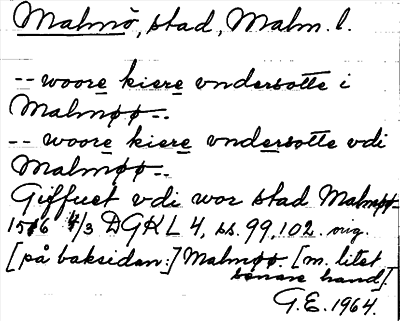 Malmö, stad, Malm. l.
-- woore kiere vndersotte i
Malmøø --.
-- woore kiere vndersotte vdi
Malmøø --.
Giffuet vdi wor stad Malmøø --
1516 4/3 DGKL 4, ss. 99, 102. orig.
[på baksidan:] Malmøø. [m. litet
senare hand].
G.E. 1964.